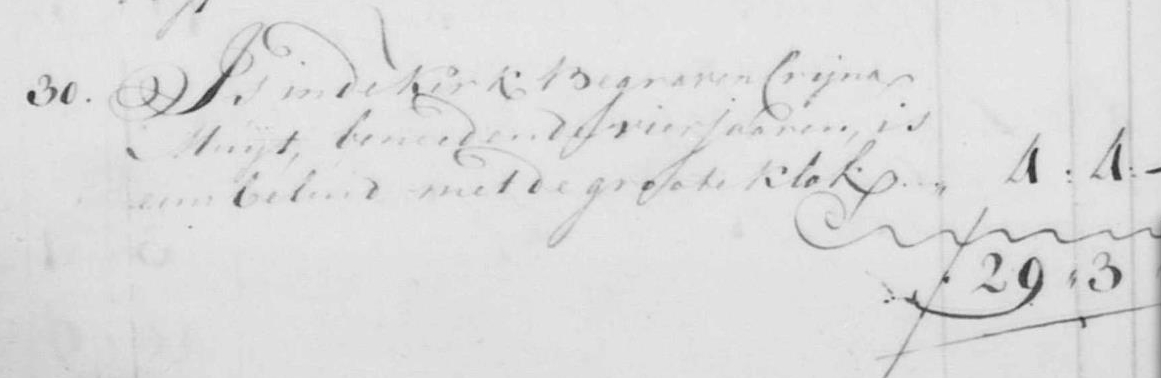 30. Is in de Kerk Begraven Crijna
Muijt, beneeden de vier jaaren, is
eens beluid met de groote klok . . „ 4 : 4 : —
29 „ 3